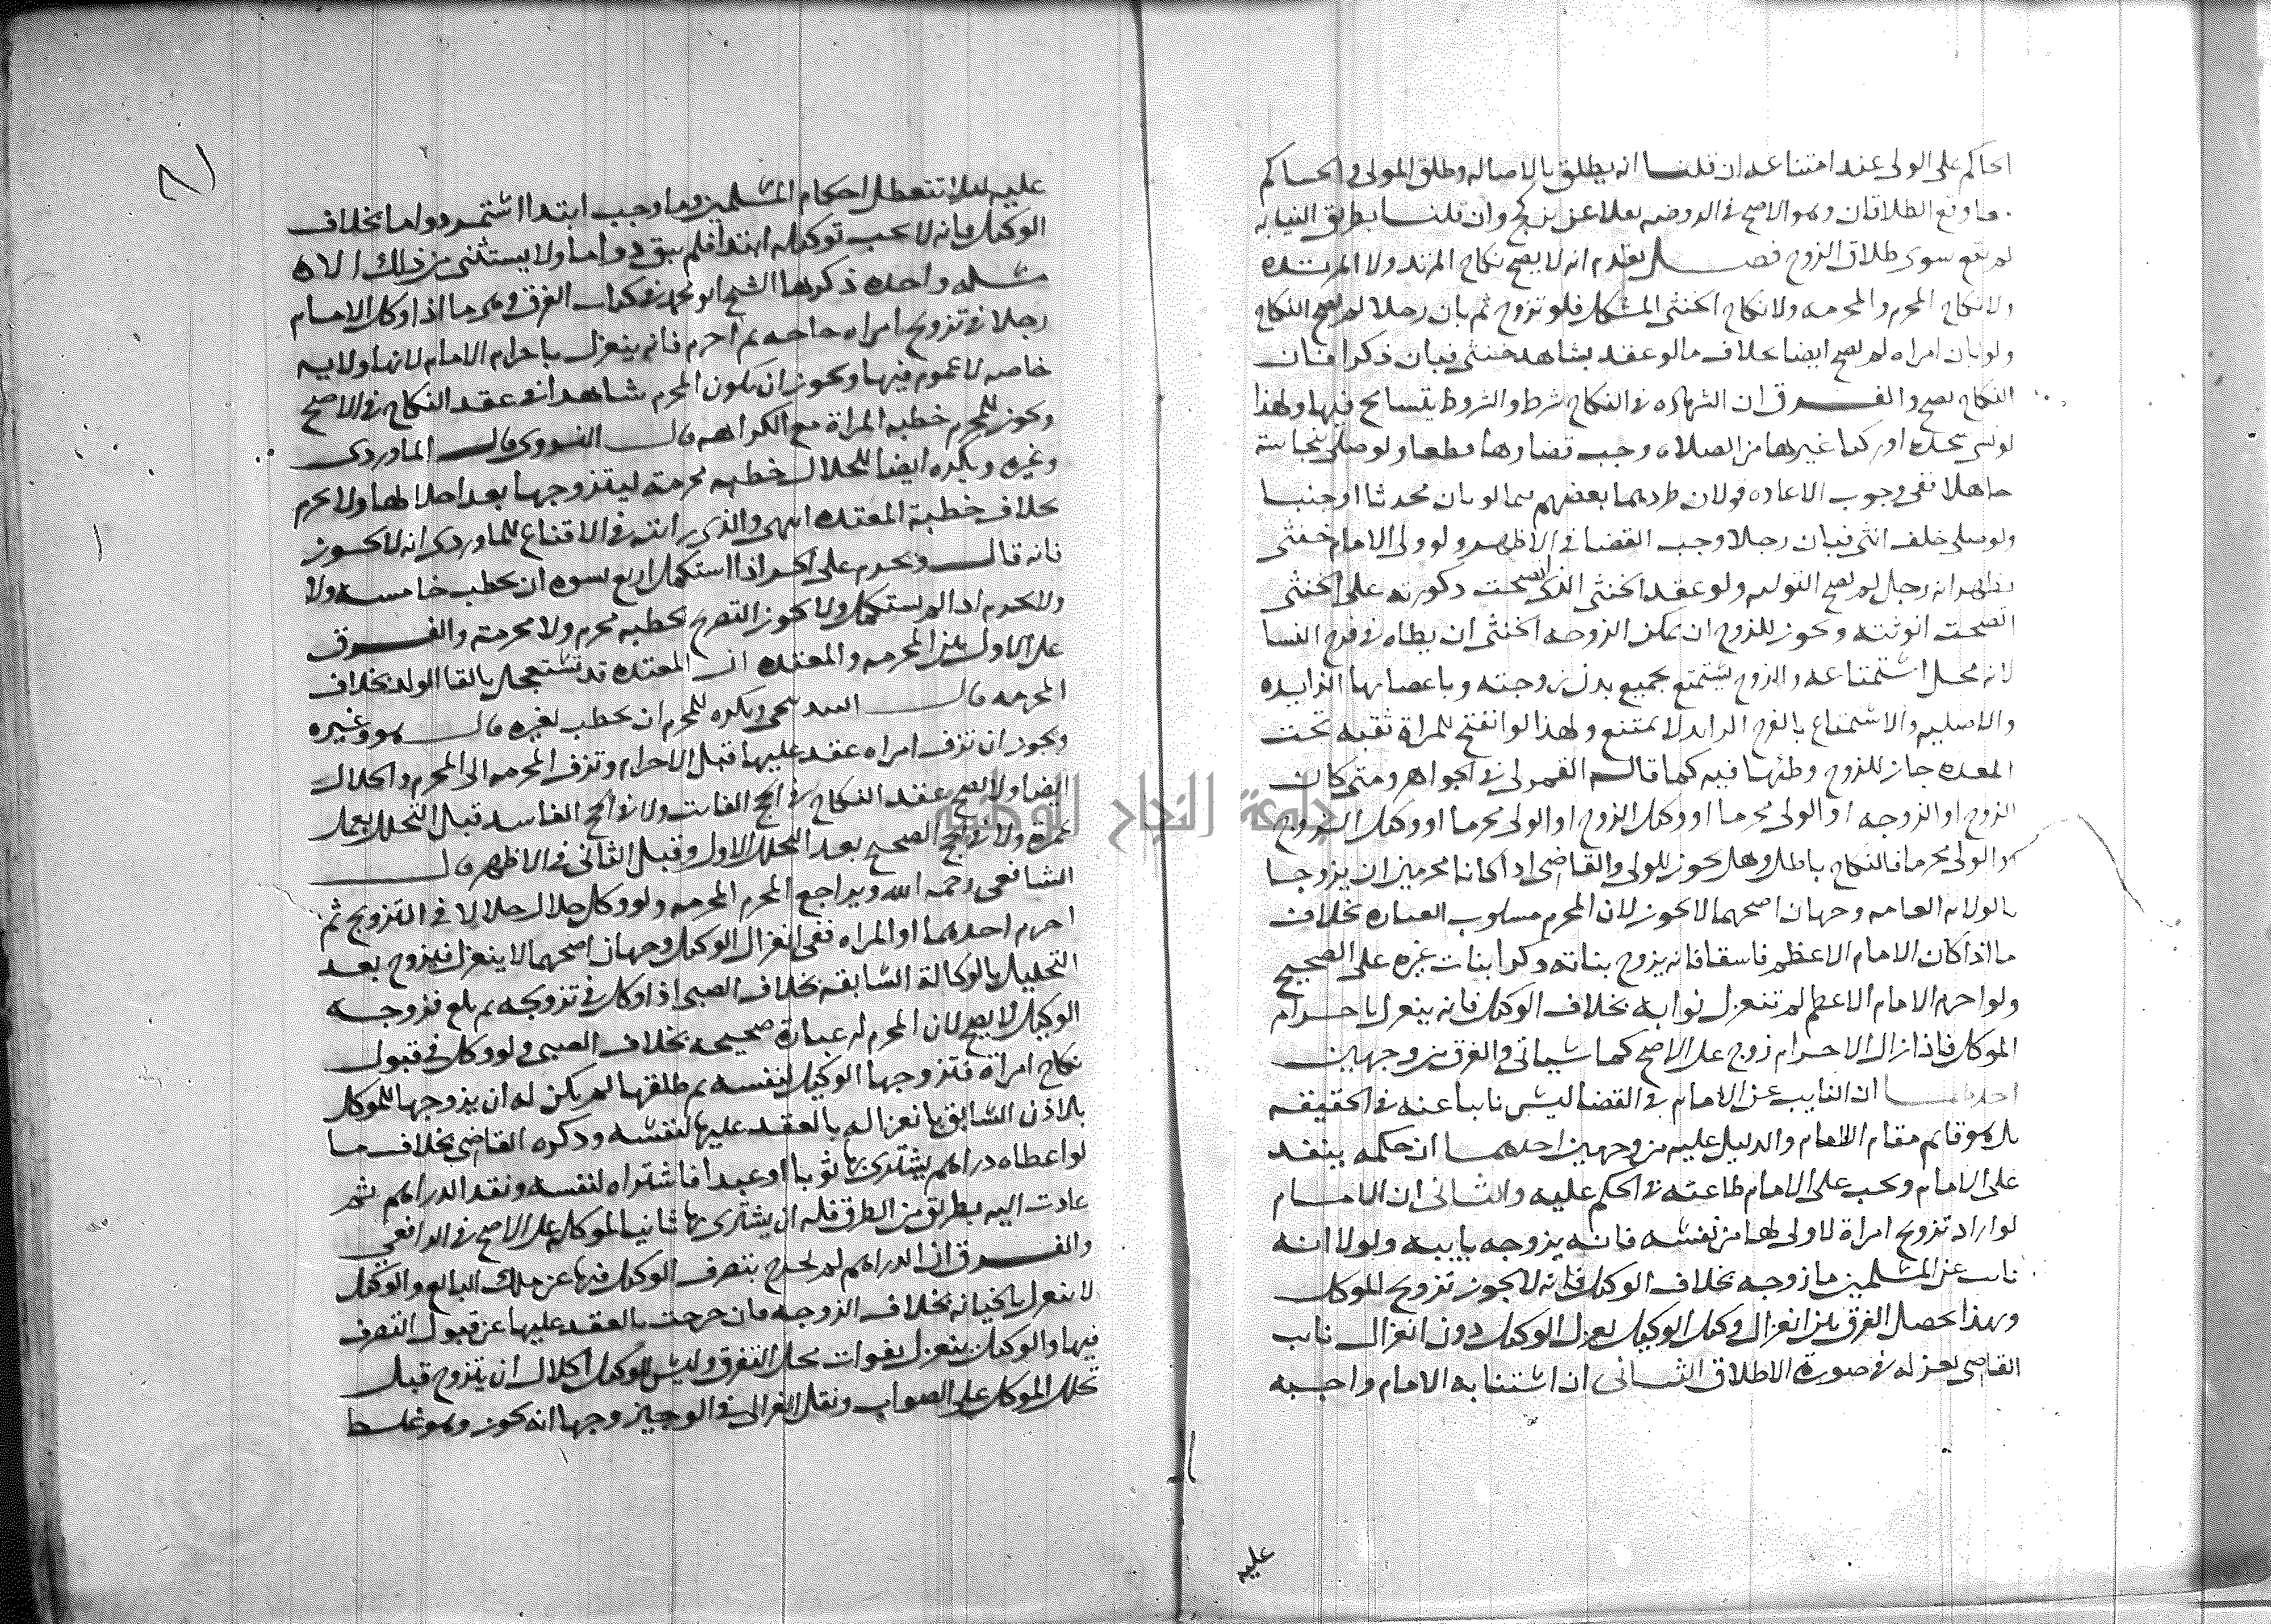 الحاكم على المولى عند امتناعه ان قلنا انه يطلق بالاصاله وطلق المولى والحاكم
معا وقع الطلاقان وهو الاصح في الروضه نقلا عن بن كج وان قلنا بطريق النيابه
لم يقع سوى طلاق الزوج فصل تقدم انه لا يصح نكاح المرتد ولا المرتده
ولا نكاح المحرم والمحرمه ولا نكاح الخنثى المشكل فلو تزوج ثم بان رجلا لم يصح النكاح
ولو بان امراه لم يصح ايضا بخلاف ما لو عقد بشاهد خنثى فبان ذكرا فان
النكاح يصح والفرق ان الشهاده في النكاح شرط والشروط يتسامح فيها ولهذا
لو نسي سجده او ركنا غيرها من الصلاه وجب قضاوها قطعا ولو صلى بنجاسة
جاهلا ففي وجوب الاعاده قولان طردهما بعضهم فيما لو بان محدثا او جنبا
ولو صلى خلف انثى فبان رجلا وجب القضا في الاظهر ولو ولي الامام خنثى
فظهر انه رجل لم تصح التوليه ولو عقد الخنثى الذي اتضحت ذكورته على الخنثى
اتضحت انوثته ويجوز للزوج ان يمكن الزوجه الخنثى ان يطاه في فرج النسا
لانه محل استمتاعه والزوج يستمتع بجميع بدن زوجته وباعضايها الزايده
والاصليه والاستمتاع بالفرج الزايد لا يمتنع ولهذا لو انفتح للمراة ثقبه تحت
المعده جاز للزوج وطئها فيه كما قاله القمولي في الجواهر ومتى كان
الزوج او الزوجه او الولي محرما او وكيل الزوج او الولي محرما او وكيل الزوج
او الولي محرما فالنكاح باطل وهل يجوز للولي والقاضي اذا كانا محرمين ان يزوجا
بالولايه العامه وجهان اصحهما لا يجوز لان المحرم مسلوب العباره بخلاف
ما اذا كان الامام الاعظم فاسقا فانه يزوج بناته وكذا بنات غيره على الصحيح
ولو احرم الامام الاعظم لم تنعزل نوابه بخلاف الوكيل فانه ينعزل باحرام
الموكل فاذا زال الاحرام زوج على الاصح كما سياتي والفرق من وجهين
احدهما ان النايب عن الامام في القضا ليس نايبا عنه في الحقيقه
بل هو قايم مقام الامام والدليل عليه من وجهين احدهما ان حكمه ينفذ
على الامام ويجب على الامام طاعته في الحكم عليه والثاني ان الامام
لو اراد تزويج امراة لا ولي لها من نفسه فانه يزوجه نايبه ولولا انه
نايب عن المسلمين ما زوجه بخلاف الوكيل فانه لا يجوز تزويج الموكل
وبهذا يحصل الفرق بين انعزال وكيل الوكيل بعزل الوكيل دون انعزال نايب
القاضي بعزله في صورة الاطلاق الثاني ان استنابه الامام واجبه
عليه
٨١
عليه ليلا تتعطل احكام المسلمين وما وجب ابتدا استمر دواما بخلاف
الوكيل فانه لا يجب توكيله ابتدا فلم يبق دواما ولا يستثنى من ذلك الا
مسله واحده ذكرها الشيخ ابو محمد في كتاب الفرق وهي ما اذا وكل الامام
رجلا في تزويج امراه خاصه ثم احرم فانه ينعزل باحرام الامام لانها ولايه
خاصه لا عموم فيها ويجوز ان يكون المحرم شاهدا في عقد النكاح في الاصح
ويجوز للمحرم خطبه المراة مع الكراهه قال النووي قال الماوردي
وغيره ويكره ايضا للحلال خطبه محرمة ليتزوجها بعد احلالها ولا يحرم
بخلاف خطبة المعتده انتهى والذي رايته في الاقناع للماوردي انه لا يجوز
فانه قال ويحرم على الحر اذا استكمل اربع نسوه ان يخطب خامسه ولا
ولا يحرم اذا لم يستكمل ولا يجوز التصريح بخطبه محرم ولا محرمة والفرق
على الاول بين المحرمه والمعتده ان المعتده قد تستعجل بالقا الولد بخلاف
المحرمه قال البندنيجي ويكره للمحرم ان يخطب لغيره قال هو وغيره
ويجوز ان تزف امراه عقد عليها قبل الاحرام وتزف المحرمه الى المحرم والحلال
ايضا ولا يصح عقد النكاح في الحج الفايت ولا في الحج الفاسد قبل التحلل بعمل
عمره ولا في الحج الصحيح بعد التحلل الاول وقبل الثاني في الاظهر قال
الشافعي رحمه الله ويراجع المحرم المحرمه ولو وكل حلال حلالا في التزويج ثم
احرم احدهما او المراه ففي انعزال الوكيل وجهان اصحهما لا ينعزل فيزوج بعد
التحليل بالوكالة السابقه بخلاف الصبي اذا وكل في تزويجه ثم بلغ فزوجه
الوكيل لا يصح لان المحرم له عبارة صحيحه بخلاف الصبي ولو وكل في قبول
نكاح امراة فتزوجها الوكيل لنفسه ثم طلقها لم يكن له ان يزوجها للموكل
بالاذن السابق بانعزاله بالعقد عليها لنفسه وذكره القاضي بخلاف ما
لو اعطاه دراهم يشتري بها ثوبا او عبدا فاشتراه لنفسه ونقد الدراهم ثم
عادت اليه بطريق من الطرق فله ان يشتري بها ثانيا لموكله على الاصح في الرافعي
والفرق ان الدراهم لم تخرج بتصرف الوكيل فيها عن ملك البايع والوكيل
لا ينعزل بالخيانه بخلاف الزوجه فان خرجت بالعقد عليها عن قبول التصرف
فيها والوكيل ينعزل بفوات محل التصرف وليس للوكيل الحلال ان يتزوج قبل
تحلل الموكل على الصواب ونقل الغزالي في الوجيز وجها انه يجوز وهو غلط